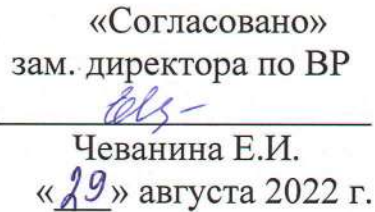 «Согласовано»
зам. директора по ВР
Чеванина Е.И.
«29» августа 2022 г.